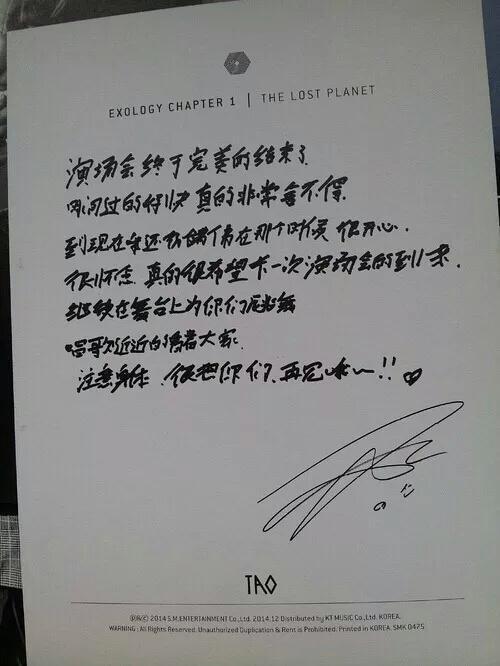 EXOLOGY CHAPTER 1 | THE LOST PLANET
演场会终于完美的结束了
时间过的好快 真的非常舍不得.
到现在我还偶偶停在那个时候 很开心.
很怀念. 真的很希望下一次演场会的到来.
继续在舞台上为你们跳舞
唱歌近近的看着大家.
注意身体. 很想你们. 再见咪~!! ♡
TAO
Ⓟ&© 2014 S.M.ENTERTAINMENT Co.,Ltd. 2014.12 Distributed by KT MUSIC Co.,Ltd. KOREA.
WARNING : All Rights Reserved. Unauthorized Duplication & Rent is Prohibited. Printed in KOREA. SMK 0475